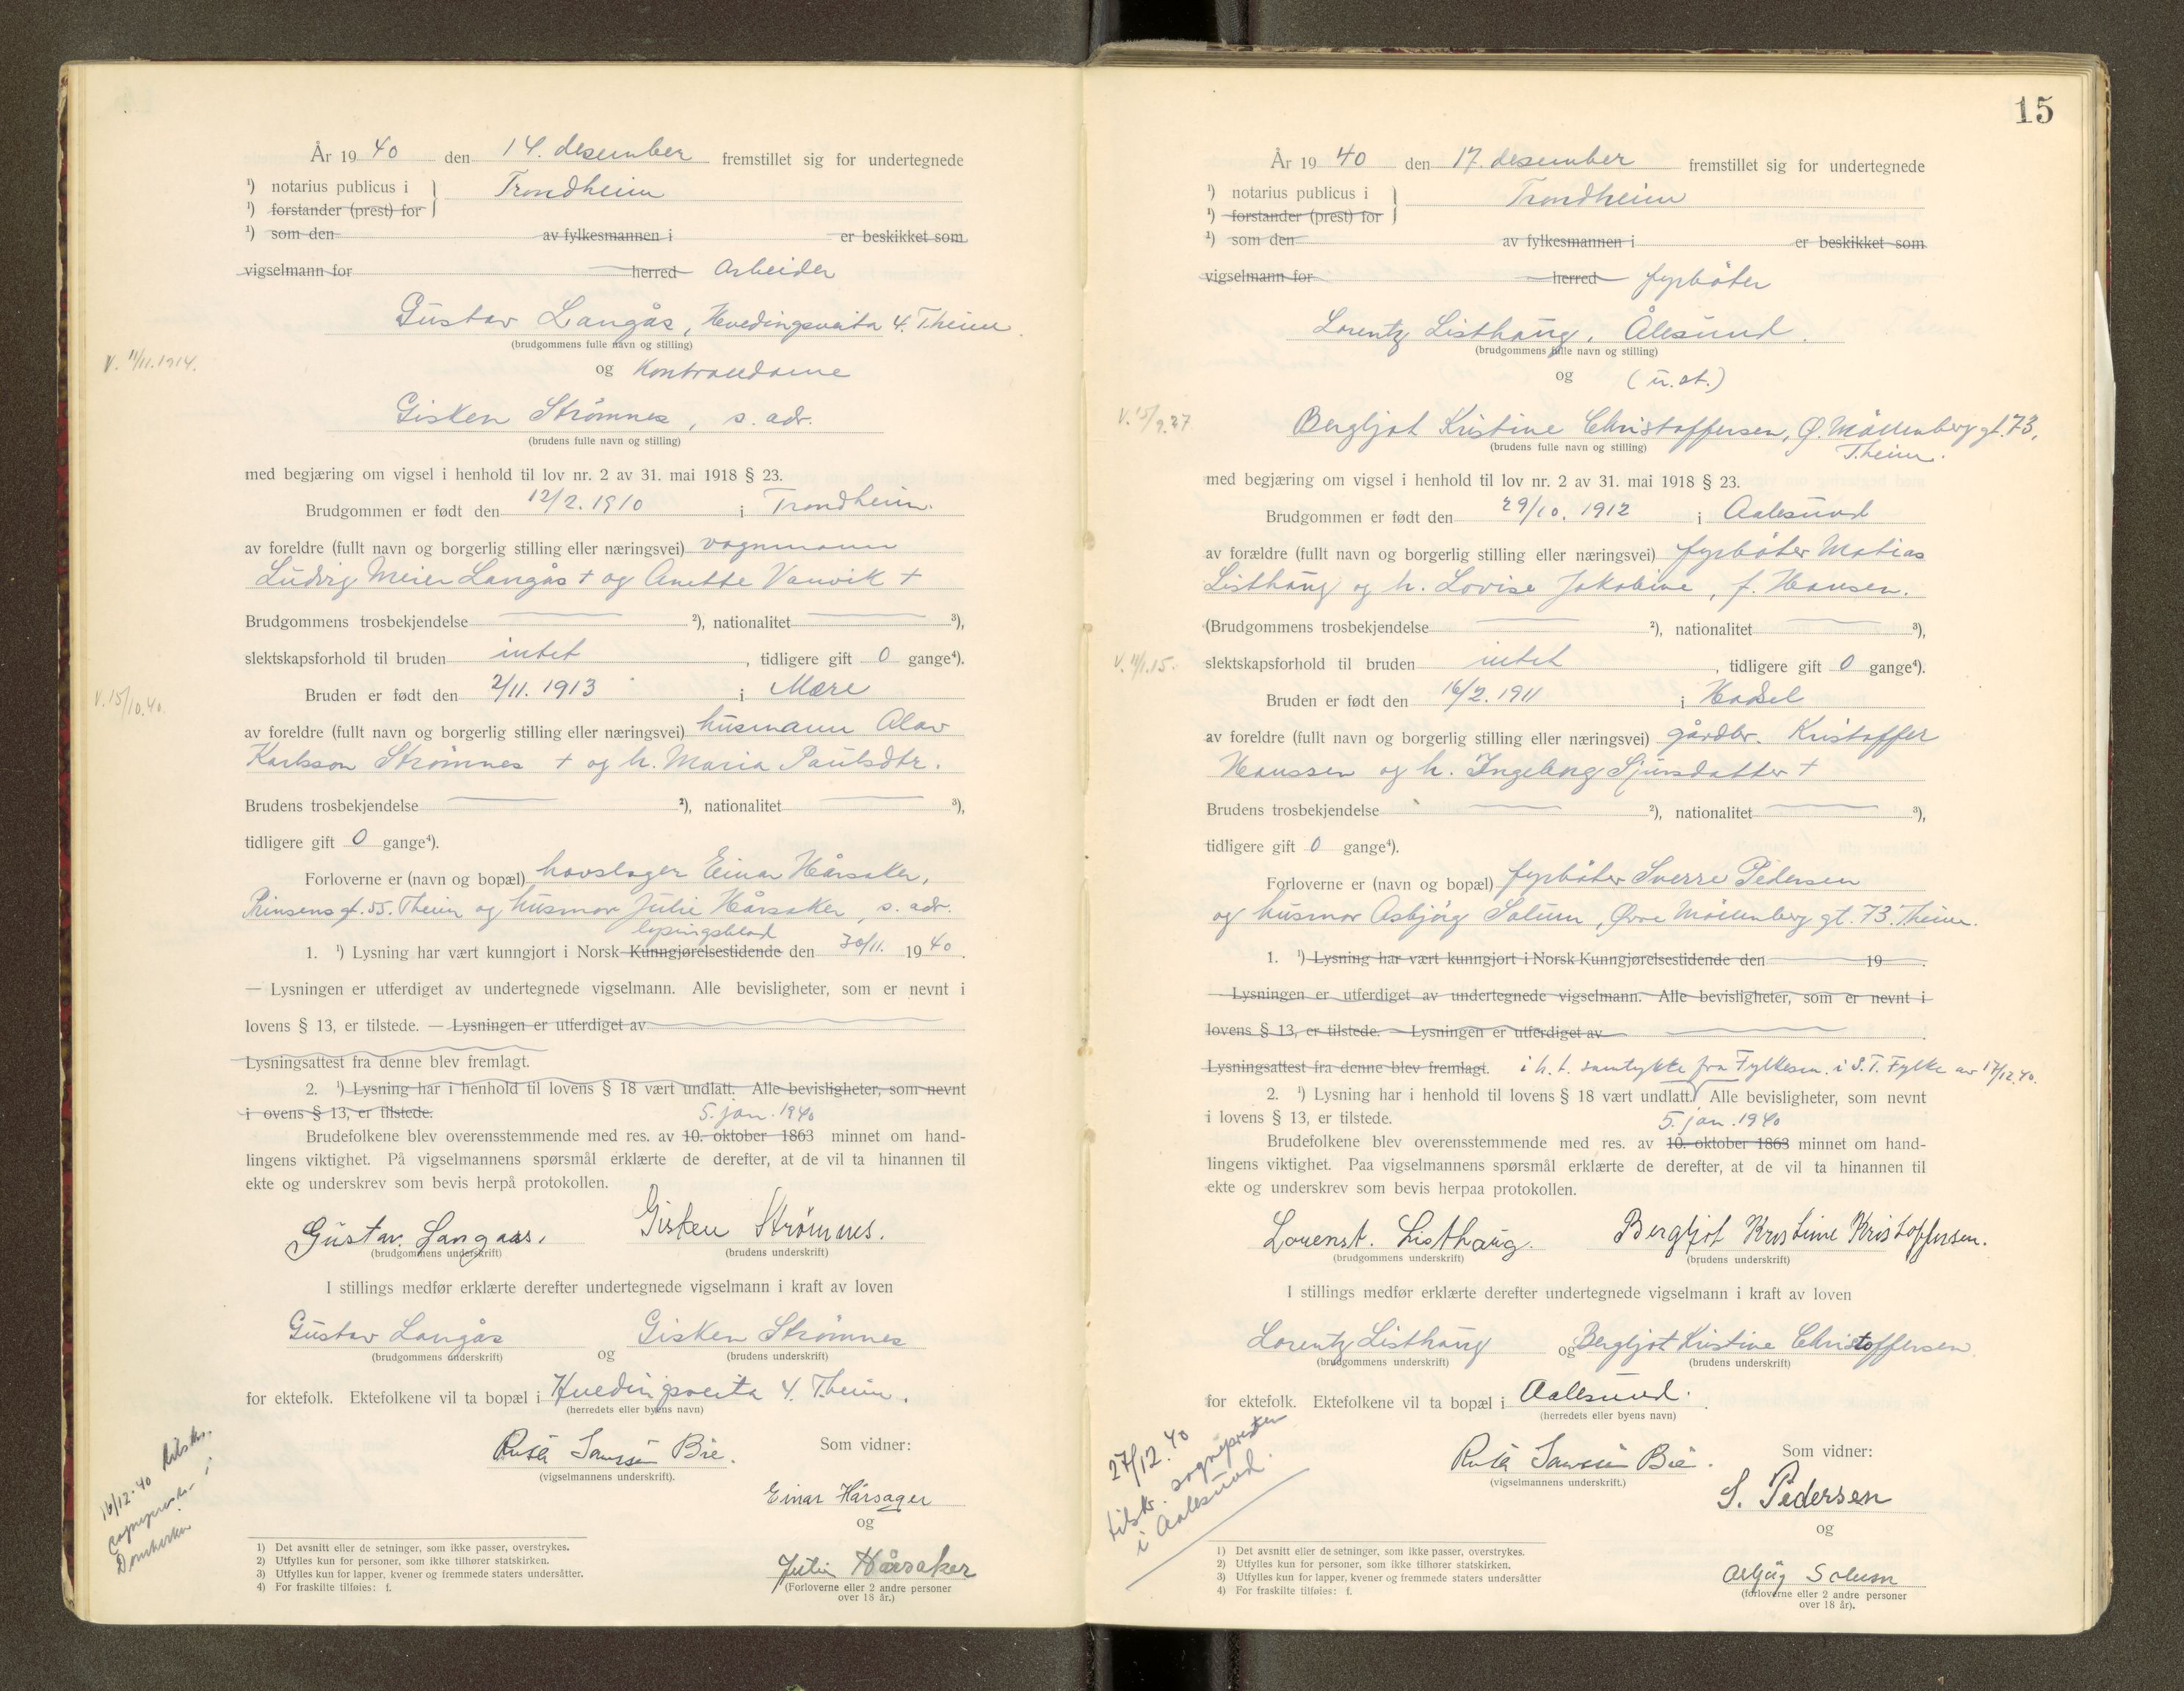 År 19 40 den 14. desember fremstillet sig for undertegnede
¹) notarius publicus i } Trondheim
¹) forstander (prest) for
¹) som den av fylkesmannen i er beskikket som
vigselmann for herred Arbeider
Gustav Langås, Hvedingsveita 4. T.heim.
(brudgommens fulle navn og stilling)
V. 11/11.1914.
og Kontordame
Gisken Strømnes, s. adr.
(brudens fulle navn og stilling)
med begjæring om vigsel i henhold til lov nr. 2 av 31. mai 1918 § 23.
Brudgommen er født den 12/2. 1910 i Trondheim.
av foreldre (fullt navn og borgerlig stilling eller næringsvei) vognmann
Ludvig Meier Langås + og Anette Vanvik +
Brudgommens trosbekjendelse ²), nationalitet ³),
slektskapsforhold til bruden intet , tidligere gift 0 gange⁴).
Bruden er født den 2/11. 1913 i Mære
V. 15/10.40.
av foreldre (fullt navn og borgerlig stilling eller næringsvei) husmann Olav
Karlsson Strømnes + og h. Maria Paulsdtr.
Brudens trosbekjendelse ²), nationalitet ³),
tidligere gift 0 gange⁴).
Forloverne er (navn og bopæl) hovslager Einar Hårsaker,
Prinsens gt. 55. T.heim og husmor Julie Hårsaker, s. adr.
lysingsblad
1. ¹) Lysning har vært kunngjort i Norsk Kunngjørelsestidende den 30/11. 19 40.
— Lysningen er utferdiget av undertegnede vigselmann. Alle bevisligheter, som er nevnt i
lovens § 13, er tilstede. — Lysningen er utferdiget av
Lysningsattest fra denne blev fremlagt.
2. ¹) Lysning har i henhold til lovens § 18 vært undlatt. Alle bevisligheter, som nevnt
i ovens § 13, er tilstede. 5. jan. 1940
Brudefolkene blev overensstemmende med res. av 10. oktober 1863 minnet om hand-
lingens viktighet. På vigselmannens spørsmål erklærte de derefter, at de vil ta hinannen til
ekte og underskrev som bevis herpå protokollen.
Gustav Langaas. Gisken Strømnes.
(brudgommens underskrift) (brudens underskrift)
I stillings medfør erklærte derefter undertegnede vigselmann i kraft av loven
Gustav Langås og Gisken Strømnes
(brudgommens underskrift) (brudens underskrift)
for ektefolk. Ektefolkene vil ta bopæl i Hvedingsveita 4. T.heim.
(herredets eller byens navn)
Som vidner:
(vigselmannens underskrift).
16/12-40 tilskr.
Domkirken
Einar Hårsager
og
Julie Hårsaker
(Forloverne eller 2 andre personer
over 18 år.)
1) Det avsnitt eller de setninger, som ikke passer, overstrykes.
2) Utfylles kun for personer, som ikke tilhører statskirken.
3) Utfylles kun for lapper, kvener og fremmede staters undersåtter.
4) For fraskilte tilføies: f.
15
År 19 40 den 17. desember fremstillet sig for undertegnede
¹) notarius publicus i } Trondheim
¹) forstander (prest) for
¹) som den av fylkesmannen i er beskikket som
vigselmann for herred fyrbøter
Lorentz Listhaug, Ålesund.
(brudgommens fulle navn og stilling)
og (u. st.)
V. 15/9.37
Bergljot Kristine Christoffersen, Ø. Møllenberg gt. 73,
T.heim.
(brudens fulle navn og stilling)
med begjæring om vigsel i henhold til lov nr. 2 av 31. mai 1918 § 23.
Brudgommen er født den 29/10. 1912 i Aalesund
av forældre (fullt navn og borgerlig stilling eller næringsvei) fyrbøter Matias
Listhaug og h. Lovise Jakobine, f. Hansen.
(Brudgommens trosbekjendelse ²), nationalitet ³),
V. 11/1.15.
slektskapsforhold til bruden intet , tidligere gift 0 gange⁴).
Bruden er født den 16/2. 1911 i Hadsel
av foreldre (fullt navn og borgerlig stilling eller næringsvei) gårdbr. Kristoffer
Hanssen og h. Ingeborg Sjursdatter +
Brudens trosbekjendelse ²), nationalitet ³),
tidligere gift 0 gange⁴).
Forloverne er (navn og bopæl) fyrbøter Sverre Pedersen
og husmor Asbjørg Solum, Øvre Møllenberg gt. 73. T.heim.
1. ¹) Lysning har vært kunngjort i Norsk Kunngjørelsestidende den 19 .
— Lysningen er utferdiget av undertegnede vigselmann. Alle bevisligheter, som er nevnt i
lovens § 13, er tilstede. — Lysningen er utferdiget av
Lysningsattest fra denne blev fremlagt. i h. t. samtykke fra Fylkesm. i S. T. Fylke av 17/12.40.
2. ¹) Lysning har i henhold til lovens § 18 vært undlatt. Alle bevisligheter, som nevnt
i lovens § 13, er tilstede. 5. jan. 1940
Brudefolkene blev overensstemmende med res. av 10. oktober 1863 minnet om hand-
lingens viktighet. Paa vigselmannens spørsmål erklærte de derefter, at de vil ta hinannen til
ekte og underskrev som bevis herpaa protokollen.
Lorenst. Listhaug. Bergljot Kristine Kristoffersen.
(brudgommens underskrift) (brudens underskrift)
I stillings medfør erklærte derefter undertegnede vigselmann i kraft av loven
Lorentz Listhaug og Bergljot Kristine Christoffersen
(brudgommens underskrift) (brudens underskrift)
for ektefolk. Ektefolkene vil ta bopæl i Aalesund.
(herredets eller byens navn)
27/12.40
tilskr. sognepresten
i Aalesund.
Som vidner:
(vigselmannens underskrift.)
S. Pedersen
og
Asbjørg Solum
(forloverne eller 2 andre personer
over 18 år).
1) Det avsnitt eller de setninger, som ikke passer, overstrykes.
2) Utfylles kun for personer, som ikke tilhører statskirken.
3) Utfylles kun for lapper, kvener og fremmede staters undersåtter
4) For fraskilte tilføies: f.